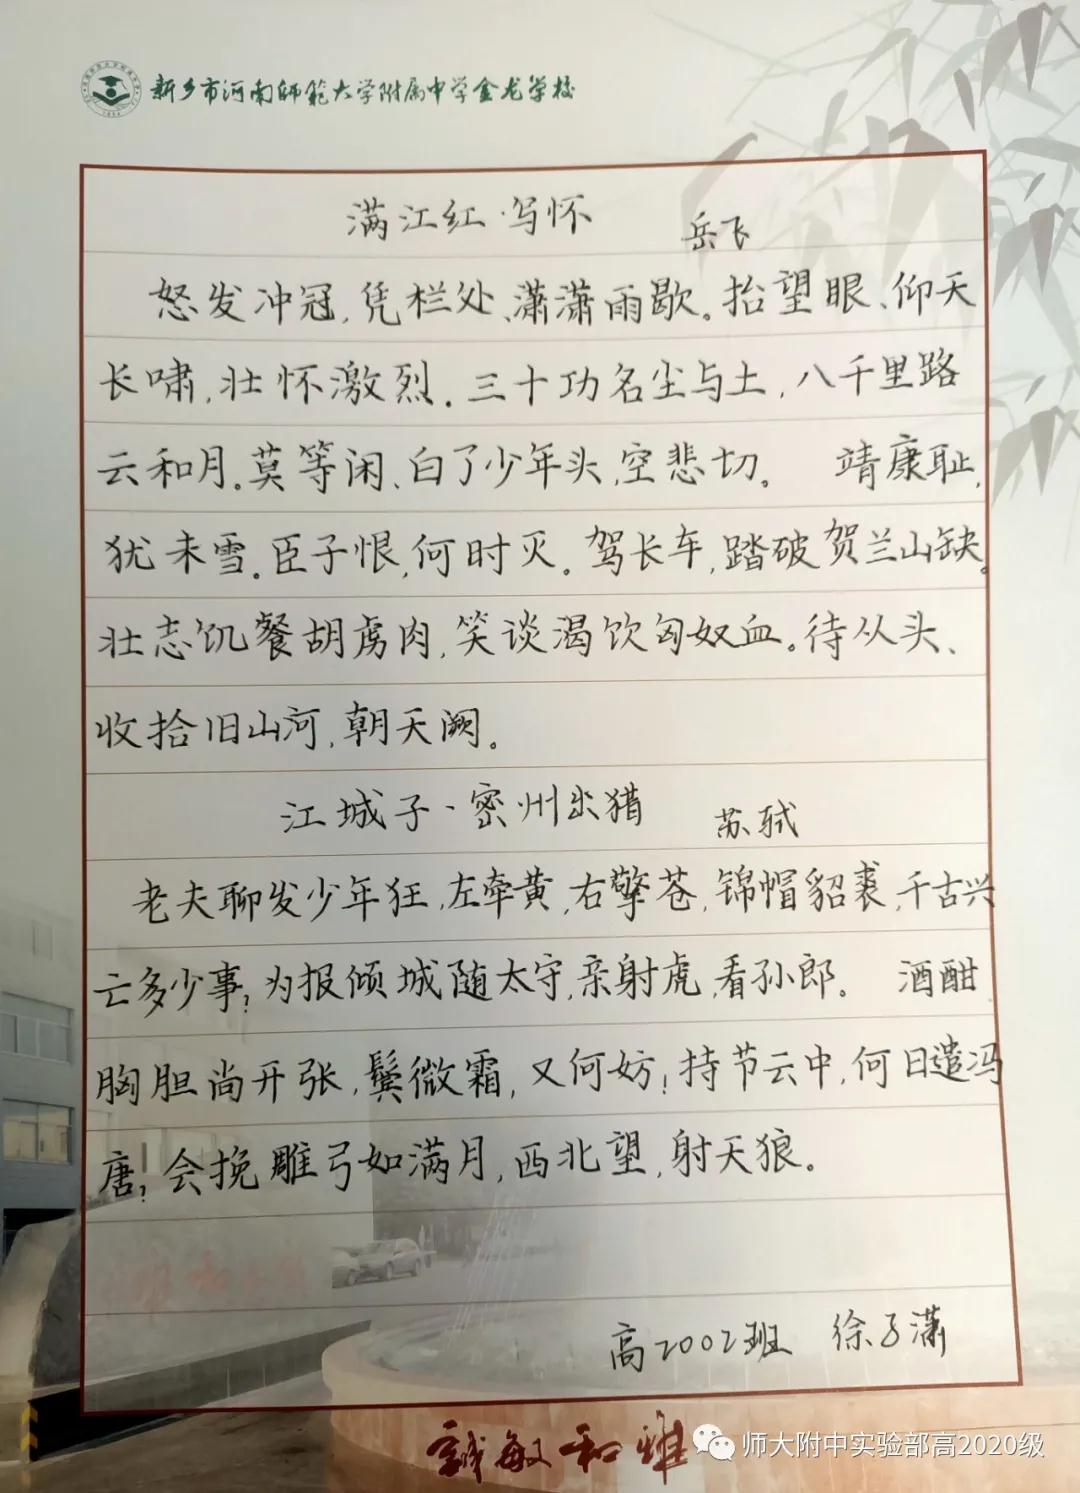 新乡市河南师范大学附属中学金龙学校
满江红·写怀 岳飞
怒发冲冠,凭栏处、潇潇雨歇。抬望眼、仰天
长啸,壮怀激烈。三十功名尘与土,八千里路
云和月。莫等闲、白了少年头,空悲切。 靖康耻,
犹未雪。臣子恨,何时灭。驾长车,踏破贺兰山缺。
壮志饥餐胡虏肉,笑谈渴饮匈奴血。待从头、
收拾旧山河,朝天阙。
江城子·密州出猎 苏轼
老夫聊发少年狂,左牵黄,右擎苍,锦帽貂裘,千古兴
亡多少事?为报倾城随太守,亲射虎,看孙郎。 酒酣
胸胆尚开张,鬓微霜,又何妨!持节云中,何日遣冯
唐?会挽雕弓如满月,西北望,射天狼。
高2002班 徐子潇
诚敏和雅
师大附中实验部高2020级